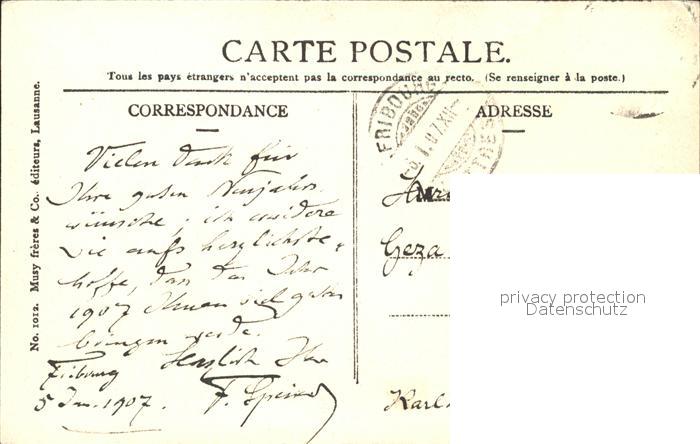 CARTE POSTALE.
Tous les pays étrangers n'acceptent pas la correspondance au recto. (Se renseigner à la poste.)
No. 1012. Musy frères & Co. éditeurs, Lausanne.
CORRESPONDANCE
Vielen Dank für
Ihre guten Neujahrs
wünsche, ich erwidere
sie aufs herzlichste,
hoffe, dass das Jahr
1907 Ihnen viel gutes
bringen werde.
Herzlich Ihr
Fribourg
5 Jan. 1907.
F.
ADRESSE
FRIBOURG
Geza
Karl
privacy protection
Datenschutz